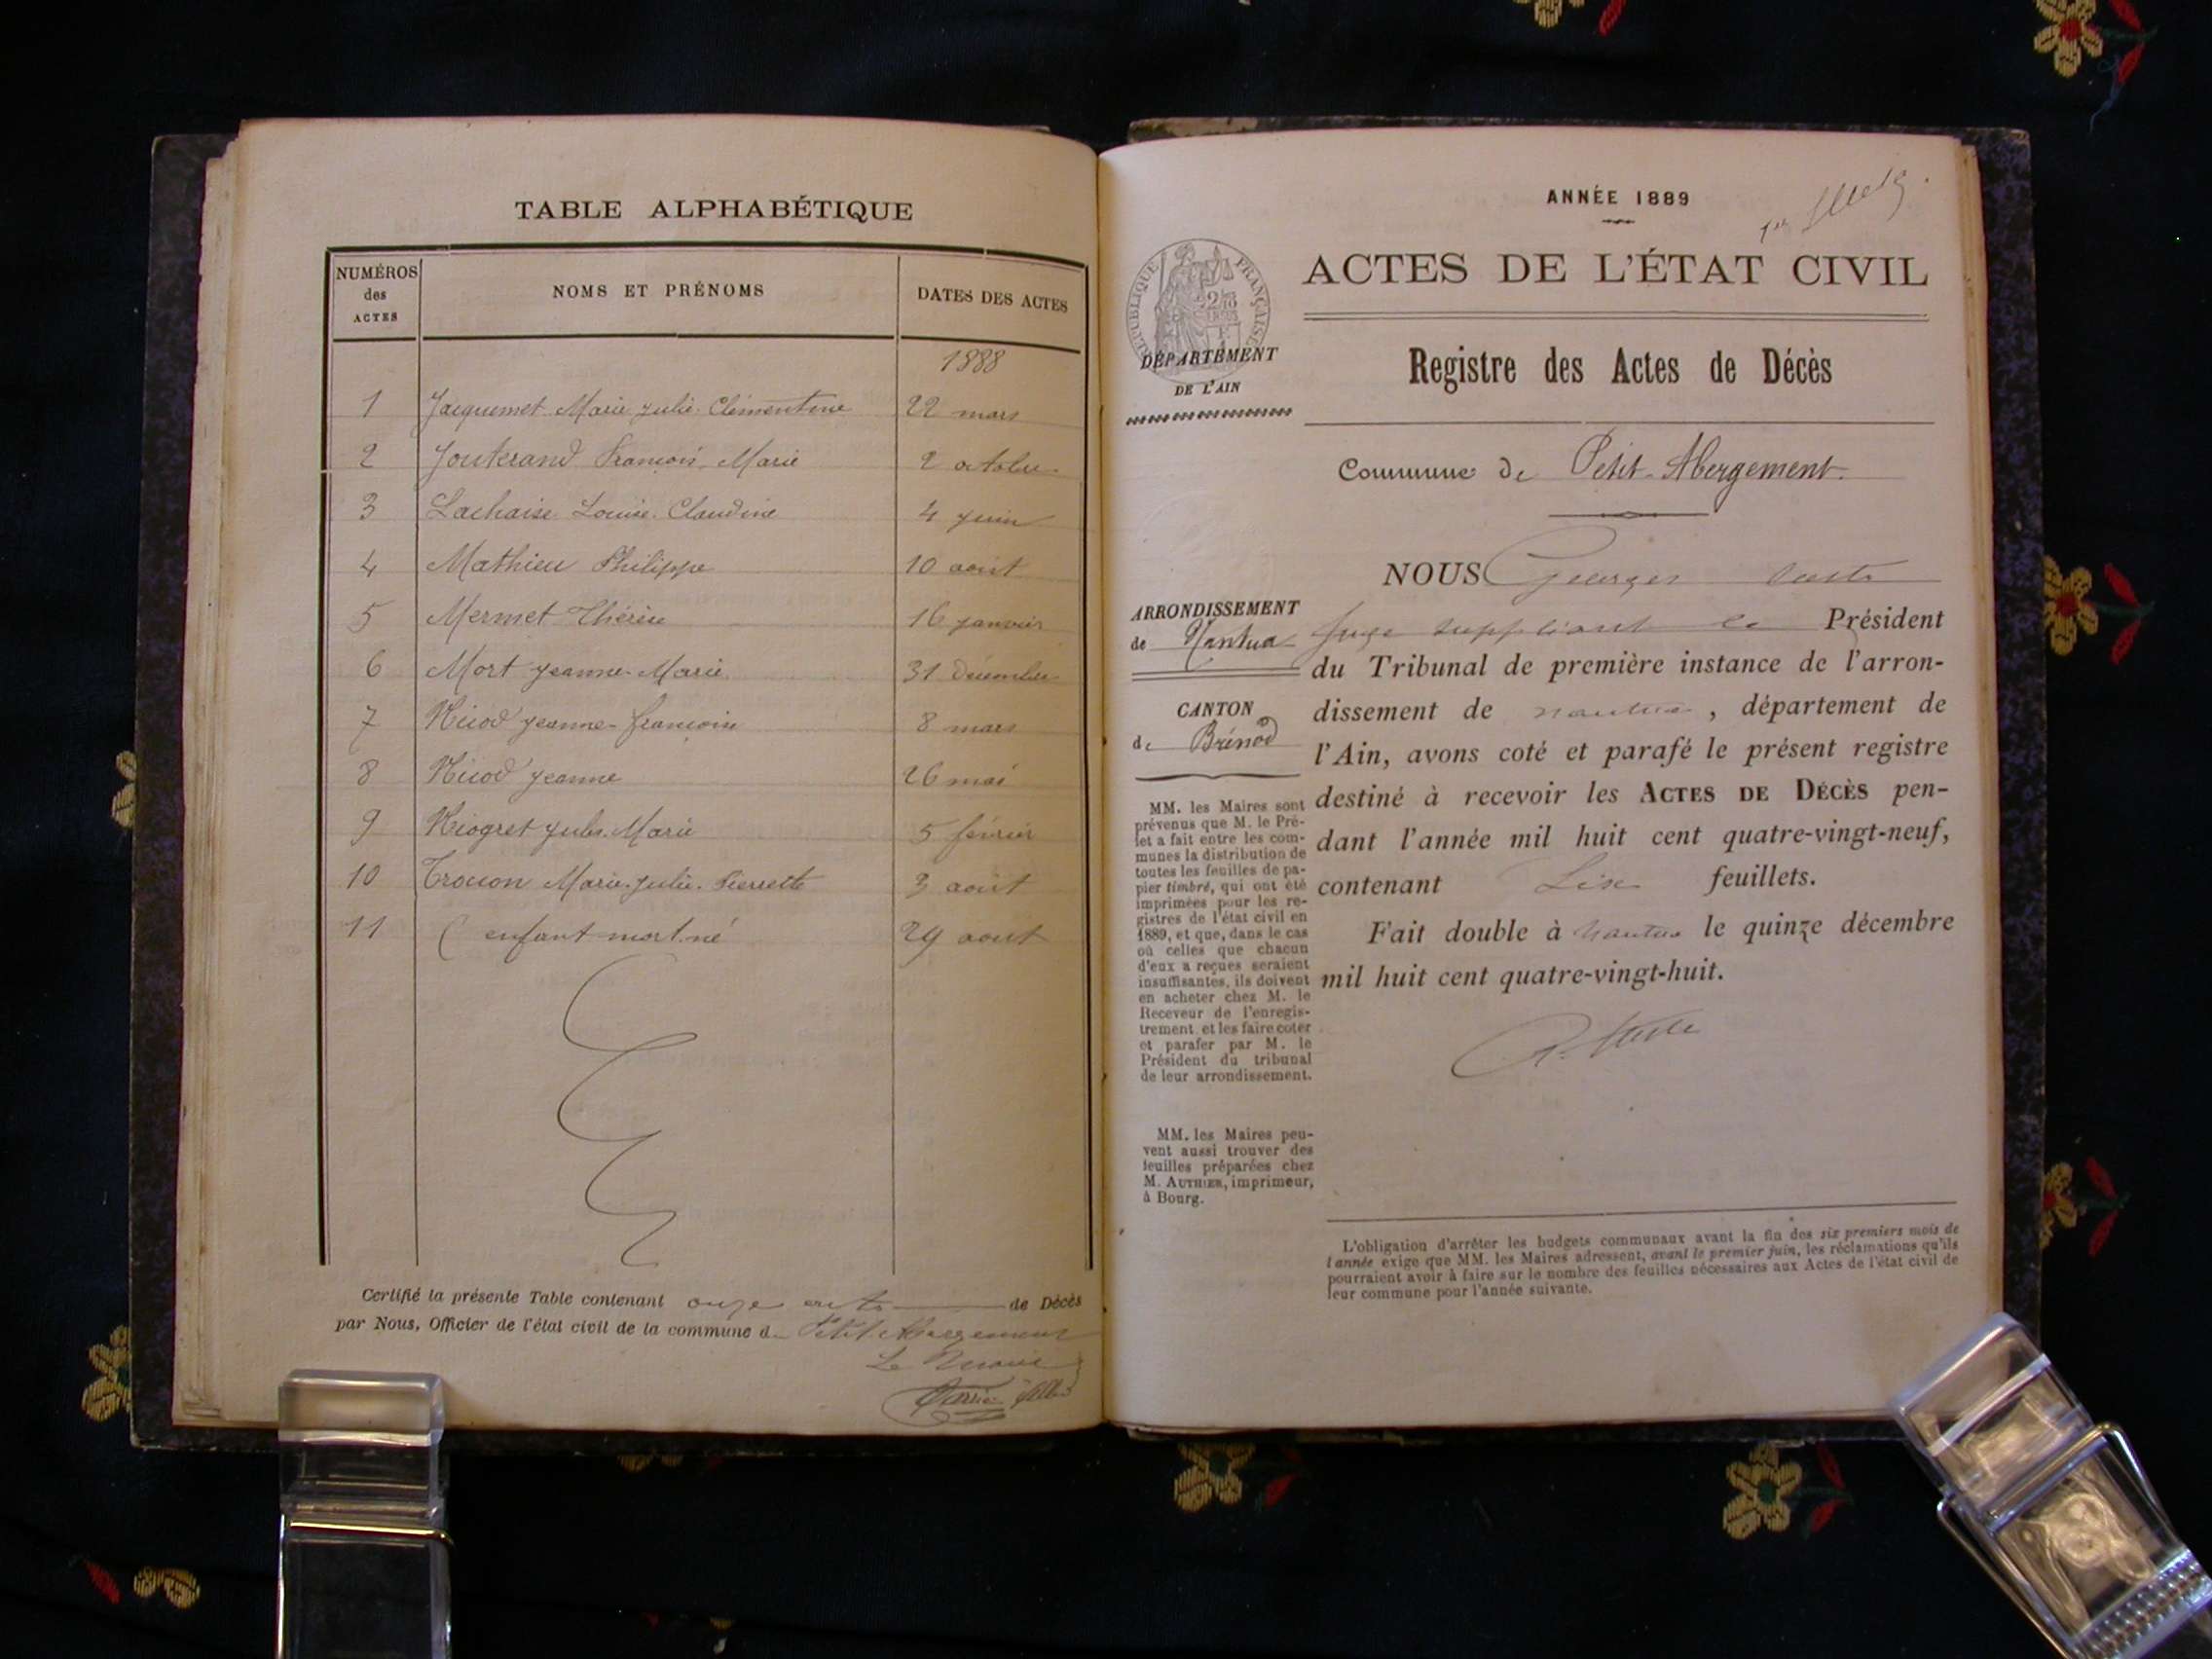 TABLE ALPHABÉTIQUE
NUMÉROS des ACTES
NOMS ET PRÉNOMS
DATES DES ACTES
1888
1 Jacquemet Marie Julie Clémentine 22 mars
2 Jouterand François Marie 2 octobre
3 Lachaise Louise Claudine 4 juin
4 Mathieu Philippe 10 août
5 Mermet Thérèse 16 janvier
6 Mort Jeanne-Marie 31 décembre
7 Nicod Jeanne-François 8 mars
8 Nicod Jeanne 26 mai
9 Niogret Jules Marie 5 février
10 Trocon Marie-Julie-Pierrette 3 août
11 enfant mort-né 29 août
Certifié la présente Table contenant onze actes de Décès
par Nous, Officier de l'état civil de la commune d Petit Abergement
Le Maire
ANNÉE 1889
ACTES DE L'ÉTAT CIVIL
RÉPUBLIQUE FRANÇAISE
DÉPARTEMENT
DE L'AIN
Registre des Actes de Décès
Commune de Petit-Abergement
NOUS Georges
ARRONDISSEMENT
de Nantua
juge suppléant le Président
du Tribunal de première instance de l'arron-
dissement de Nantua, département de
l'Ain, avons coté et parafé le présent registre
destiné à recevoir les ACTES DE DÉCÈS pen-
dant l'année mil huit cent quatre-vingt-neuf,
contenant Six feuillets.
Fait double à Nantua le quinze décembre
mil huit cent quatre-vingt-huit.
CANTON
de Brénod
MM. les Maires sont
prévenus que M. le Pré-
fet a fait entre les com-
munes la distribution de
toutes les feuilles de pa-
pier timbré, qui ont été
imprimées pour les re-
gistres de l'état civil en
1889, et que, dans le cas
où celles que chacun
d'eux a reçues seraient
insuffisantes, ils doivent
en acheter chez M. le
Receveur de l'enregis-
trement et les faire coter
et parafer par M. le
Président du tribunal
de leur arrondissement.
MM. les Maires peu-
vent aussi trouver des
feuilles préparées chez
M. AUTHIER, imprimeur,
à Bourg.
L'obligation d'arrêter les budgets communaux avant la fin des six premiers mois de
l'année exige que MM. les Maires adressent, avant le premier juin, les réclamations qu'ils
pourraient avoir à faire sur le nombre des feuilles nécessaires aux Actes de l'état civil de
leur commune pour l'année suivante.